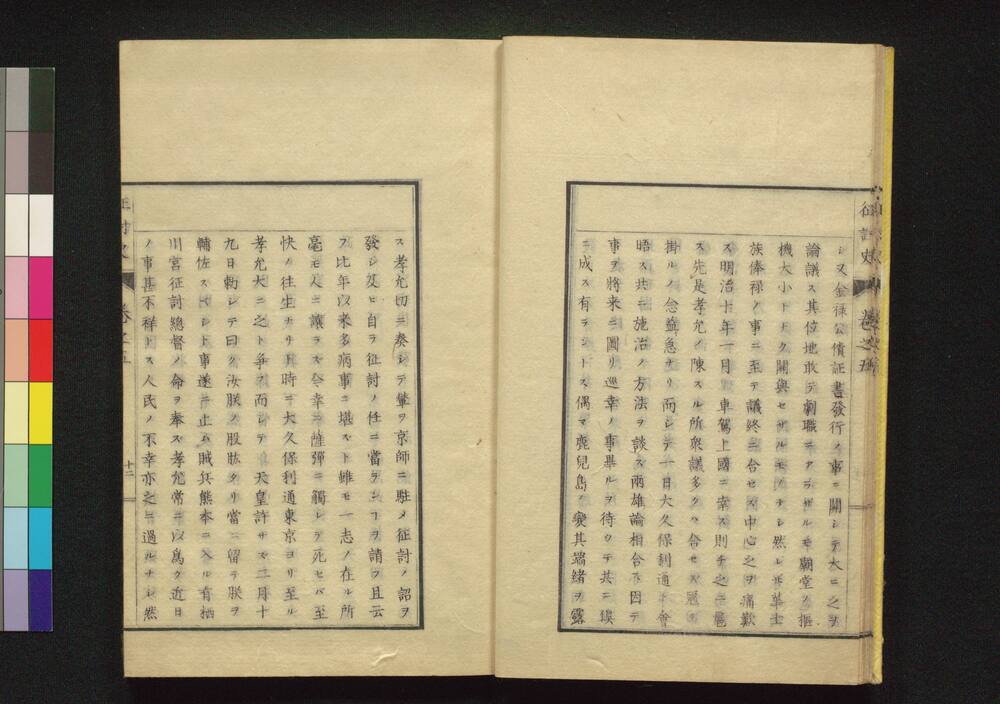 シ又金祿公債証書發行ノ事ニ關シテ大ニ之ヲ
論議ス其位地敢テ劇職ニアラザルモ廟堂ノ樞
機大小トナク關與セザルモノナシ然レトモ華士
族俸祿ノ事ニ至テ議終ニ合セス中心之ヲ痛歎
ス明治十年一月 車駕上國ニ幸ス則チ之ニ扈
ス先是孝允ノ陳スル所衆議多クハ合セス冠ヲ
掛ルノ念益急ナリ而シテ一日大久保利通ト會
晤ス共ニ施治ノ方法ヲ談ス兩雄論相合フ因テ
事ヲ將來ニ圖リ巡幸ノ事畢ルヲ待ウテ共ニ俟
ニ成ス有ラントス偶マ鹿兒島ノ變其端緒ヲ露
ス孝允切ニ奏シテ輦ヲ京師ニ駐メ征討ノ詔ヲ
發シ及ヒ自ヲ征討ノ任ニ當ランヿヲ請フ且云
フ比年以来多病事ニ堪スト雖モ一志ノ在ル所
毫モ人ニ讓ラス今幸ニ陣彈ニ觸レテ死セバ至
快ノ往生ナリト時ニ大久保利通東京ヨリ至ル
孝允大ニ之ト爭フ而シテ 天皇許サス二月十
九日勅シテ曰ク汝朕ノ股肱タリ當ニ留テ朕ヲ
輔佐スベシト事遂ニ止ム賊兵熊本ニ入ル有栖
川宮征討總督ノ命ヲ奉ス孝允常ニ以爲ク近日
ノ事甚不祥トス人民ノ不幸亦之ニ過ルナシ然
征討史 卷之五
十二